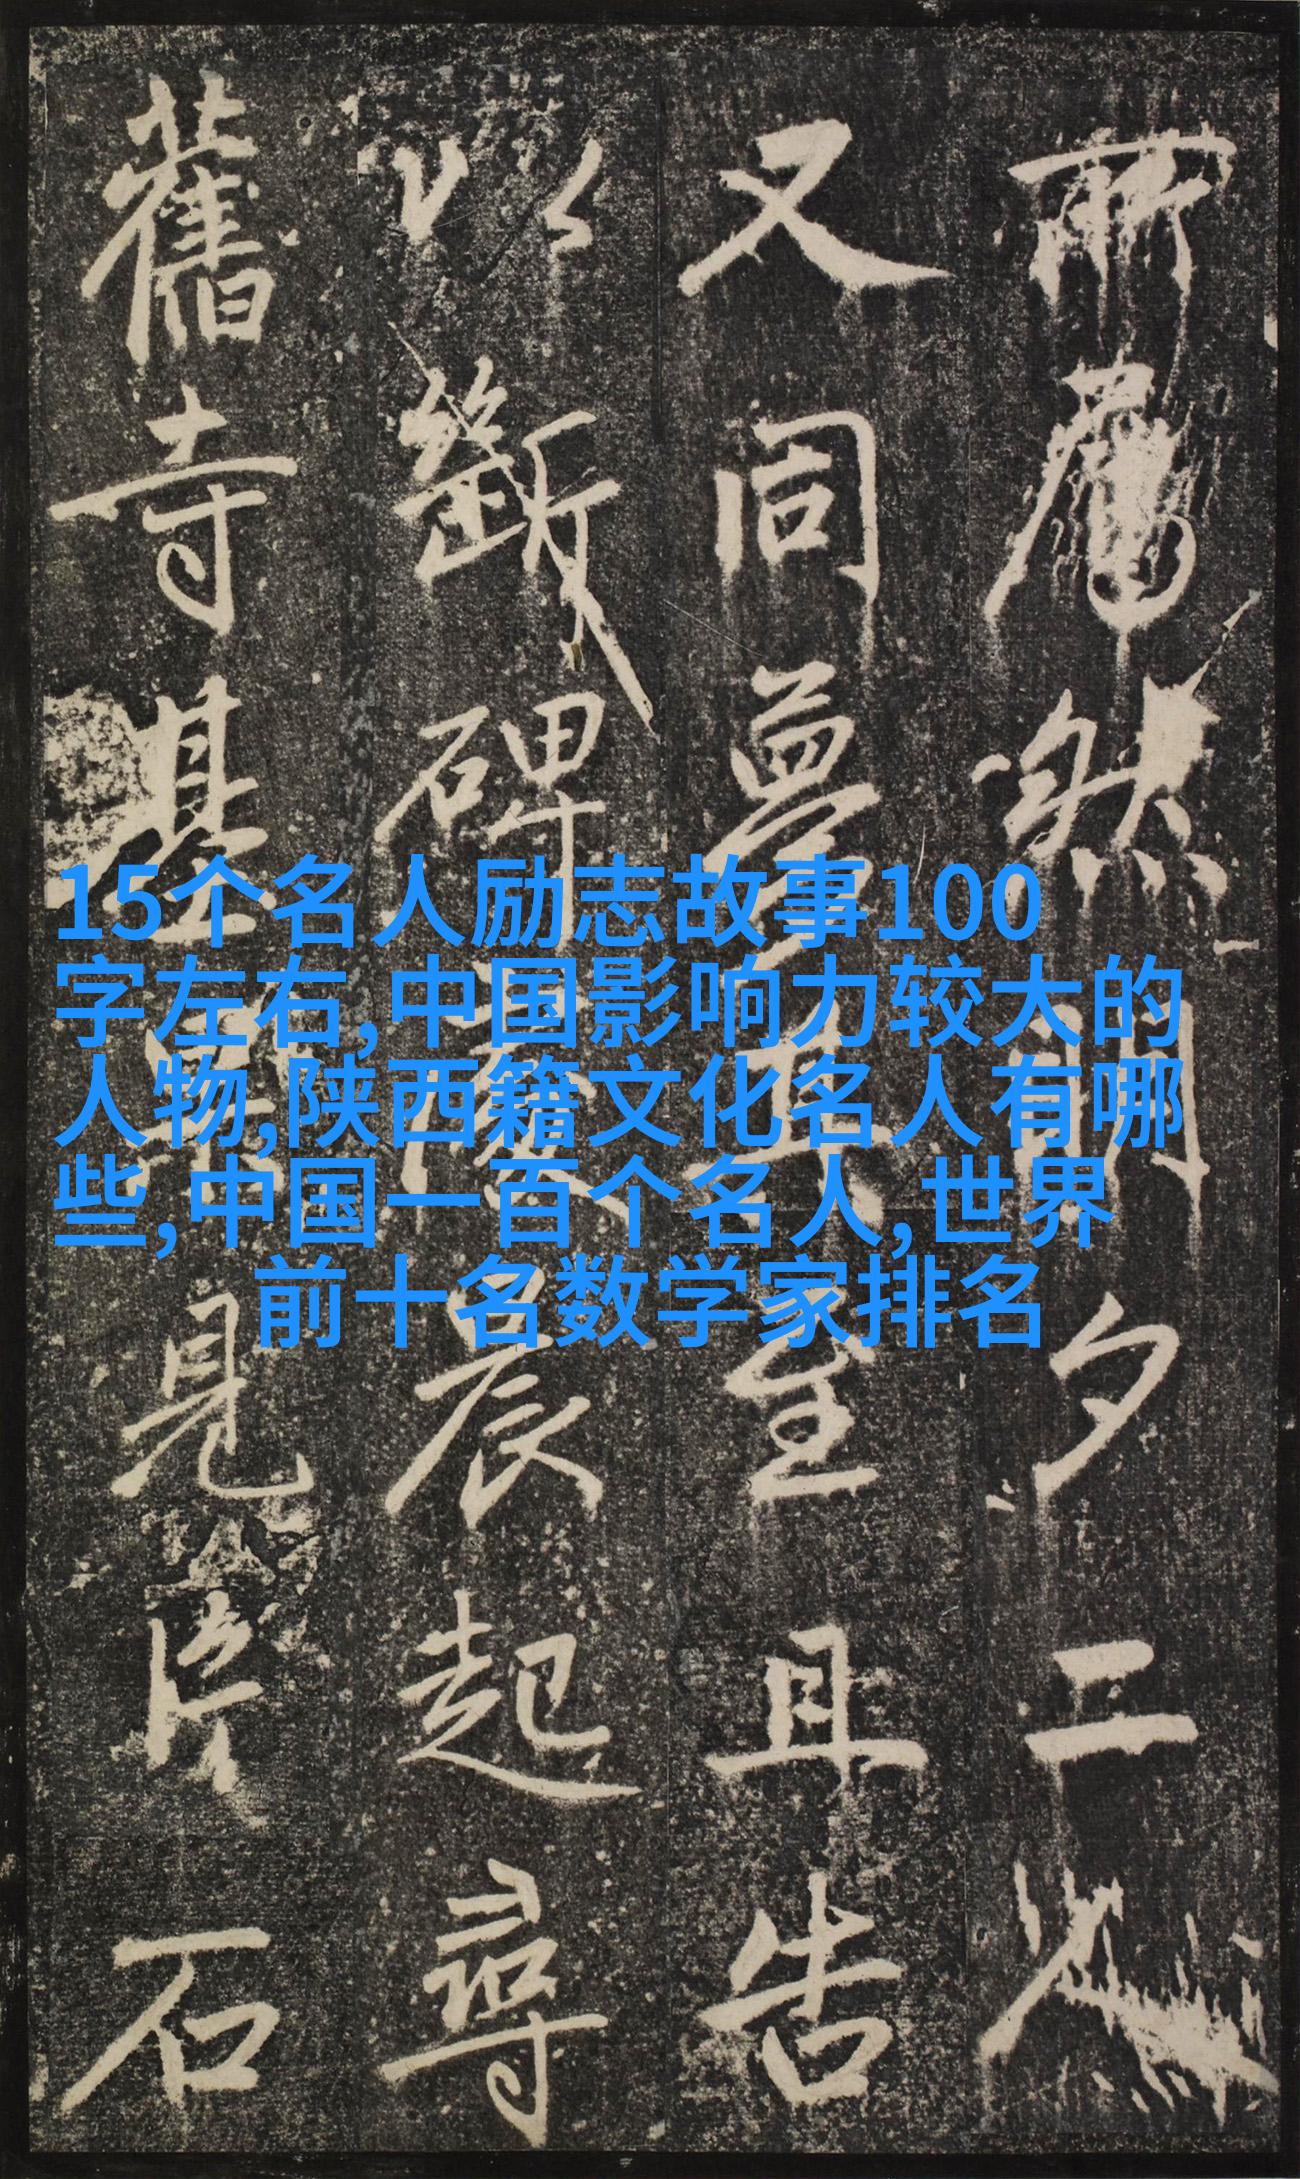 15个名人励志故事100
字左右,中国影响力较大的
人物,陕西籍文化名人有哪
些,中国一百个名人,世界
前十名数学家排名
所然明夕二
又同夢至且告
以斷碑晨起尋
舊寺基見石